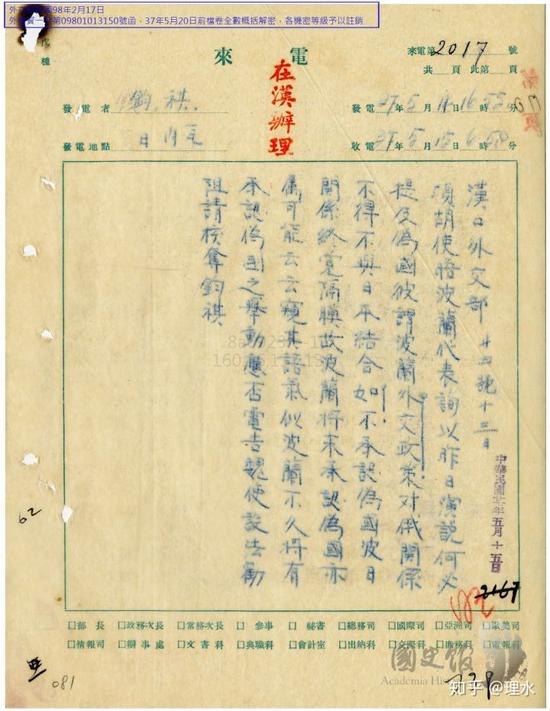 98年2月17日
第09801013150號函，37年5月20日前檔卷全數概括解密，各機密等級予以註銷
來電
來電第2017號
共 頁 此第 頁
在漢辦理
發電者 鈞祺
發電 27年5月14日16時55分
發電地點 日內瓦
收電 27年5月15日6時50分
漢口外交部 廿四號十三日
頃胡使晤波蘭代表詢以昨日演說何必
提及偽國彼謂波蘭外交政策對俄關係
不得不與日本結合如不承認偽國波日
關係終覺隔膜故波蘭將來承認偽國亦
屬可能云云窺其語氣似波蘭不久將有
承認偽國之舉動應否電告魏使設法勸
阻請核奪鈞祺
中華民國廿七年五月十五日
2167
□部長 □政務次長 □常務次長 □參事 □祕書 □總務司 □國際司 □亞洲司 □歐美司
□情報司 □辦事處 □文書科 □典職科 □會計室 □出納科 □交際科 □庶務科 □電報科
62
081
國史館
Academia His
知乎 @理水